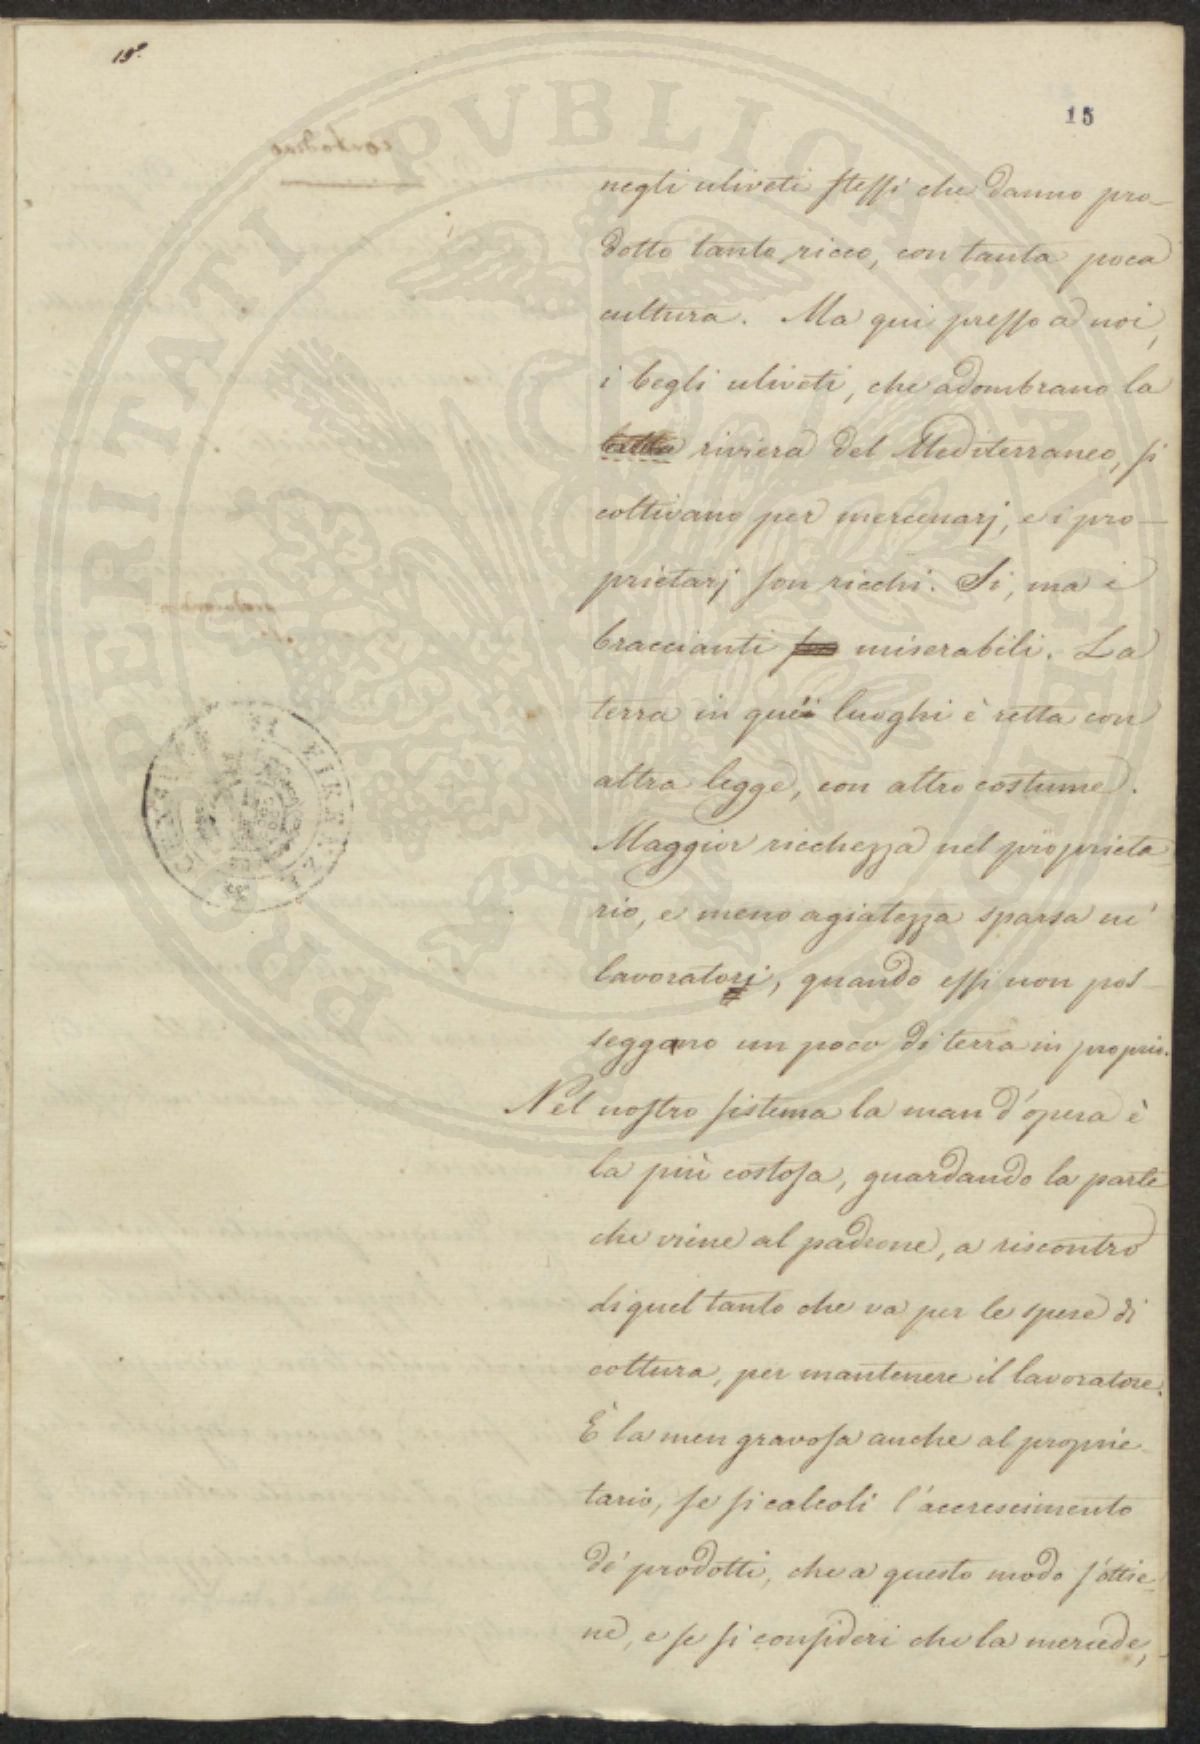 15.
15
negli uliveti stessi che danno pro-
dotto tanto ricco, con tanta poca
cultura. Ma qui presso a noi,
i begli uliveti, che adombrano la
riviera del Mediterraneo, si
coltivano per mercenarj, e i pro-
prietarj son ricchi. Si, ma i
braccianti miserabili. La
terra in quei luoghi è retta con
altra legge, con altro costume.
Maggior ricchezza nel proprieta
rio, e meno agiatezza sparsa ne'
lavoratori, quando essi non pos-
seggano un poco di terra in proprio.
Nel nostro sistema la man d'opera è
la più costosa, guardando la parte
che viene al padrone, a riscontro
di quel tanto che va per le spese di
coltura, per mantenere il lavoratore.
È la men gravosa anche al proprie-
tario, se si calcoli l'accrescimento
de' prodotti, che a questo modo s'ottie-
ne, e se si consideri che la mercede,